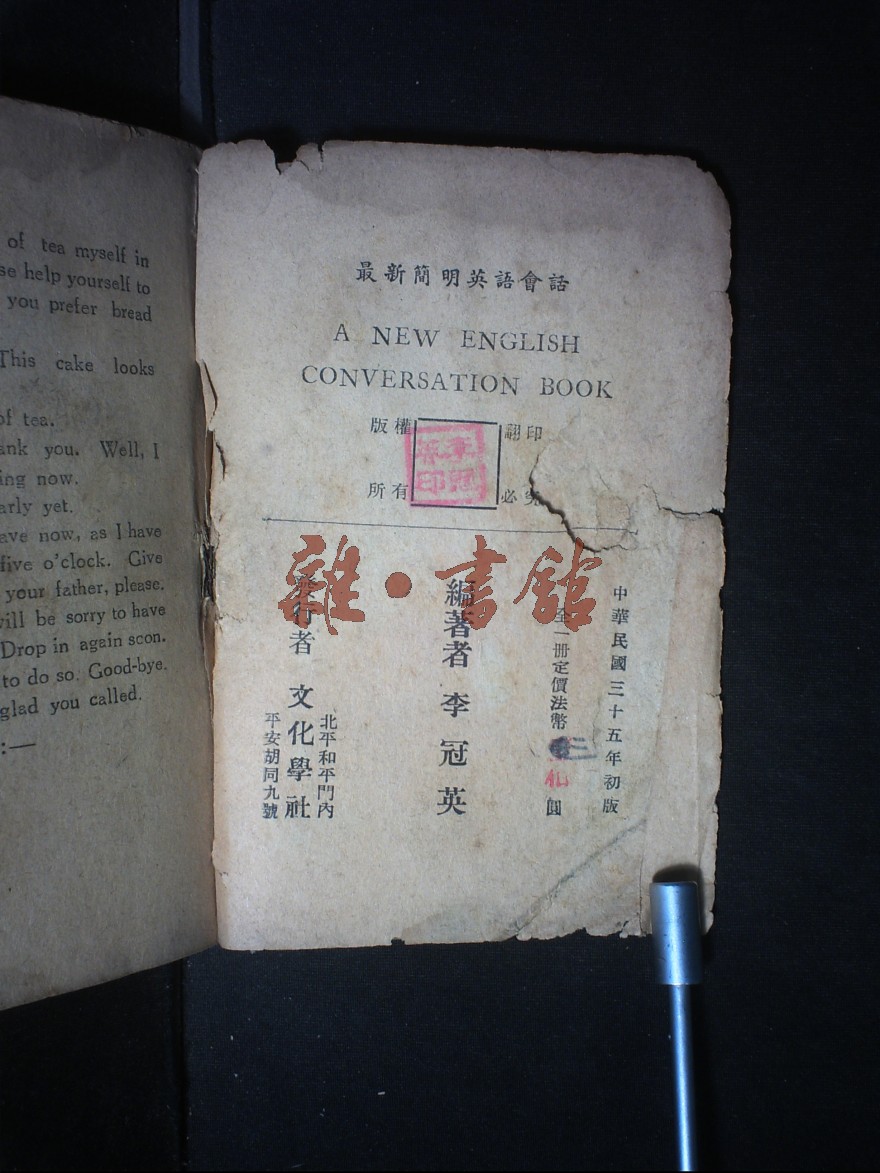 of tea myself in
se help yourself to
you prefer bread
This cake looks
of tea.
ank you. Well, I
ing now.
arly yet.
ave now, as I have
five o'clock. Give
your father, please.
will be sorry to have
Drop in again soon.
to do so. Good-bye.
glad you called.
:—
最新簡明英語會話
A NEW ENGLISH
CONVERSATION BOOK
版權 翻印
所有 必究
李冠英印
雜·書館
中華民國三十五年初版
全一册定價法幣 圓
編著者 李冠英
發行者 文化學社
北平和平門內
平安胡同九號